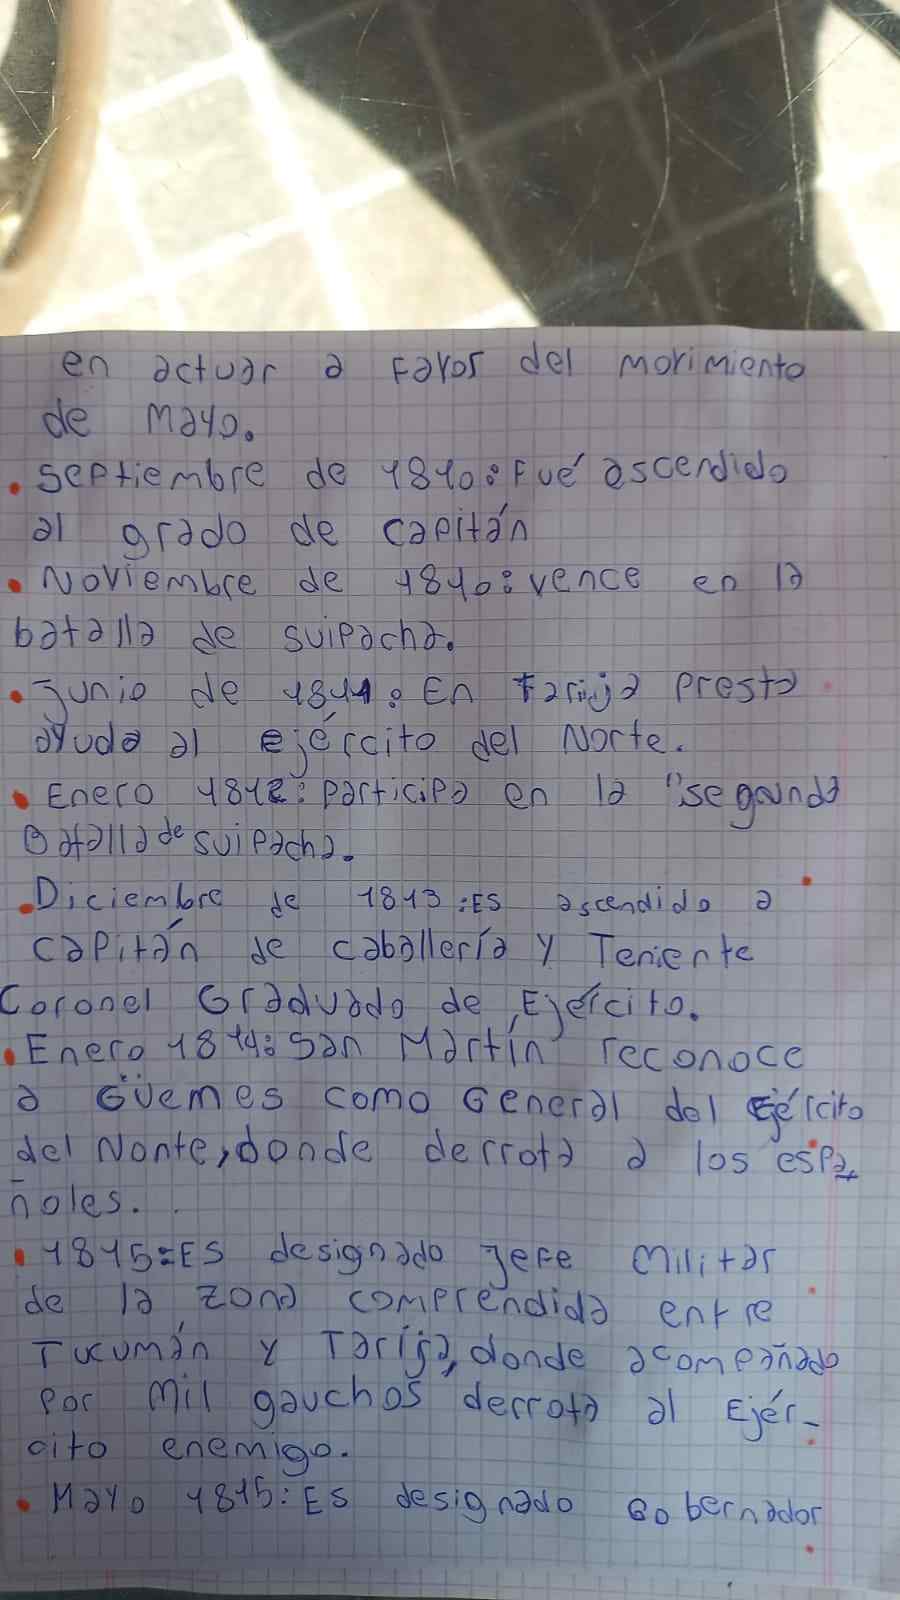 en actuar a Favor del movimiento
de Mayo.
• Septiembre de 1810: Fué ascendido
al grado de capitán
• Noviembre de 1810: vence en la
batalla de suipacha.
• Junio de 1811: En Tarija presta
ayuda al ejército del Norte.
• Enero 1812: participa en la "segunda
Batalla de suipacha.
• Diciembre de 1813: Es ascendido a
capitán de caballería y Teniente
Coronel Graduado de Ejército.
• Enero 1814: San Martín reconoce
a Güemes como General del Ejército
del Nonte, donde derrota a los espa
ñoles.
• 1815: Es designado Jefe Militar
de la zona comprendida entre
Tucumán y Tarija, donde acompañado
por mil gauchos derrota al Ejér-
cito enemigo.
• Mayo 1815: Es designado Gobernador